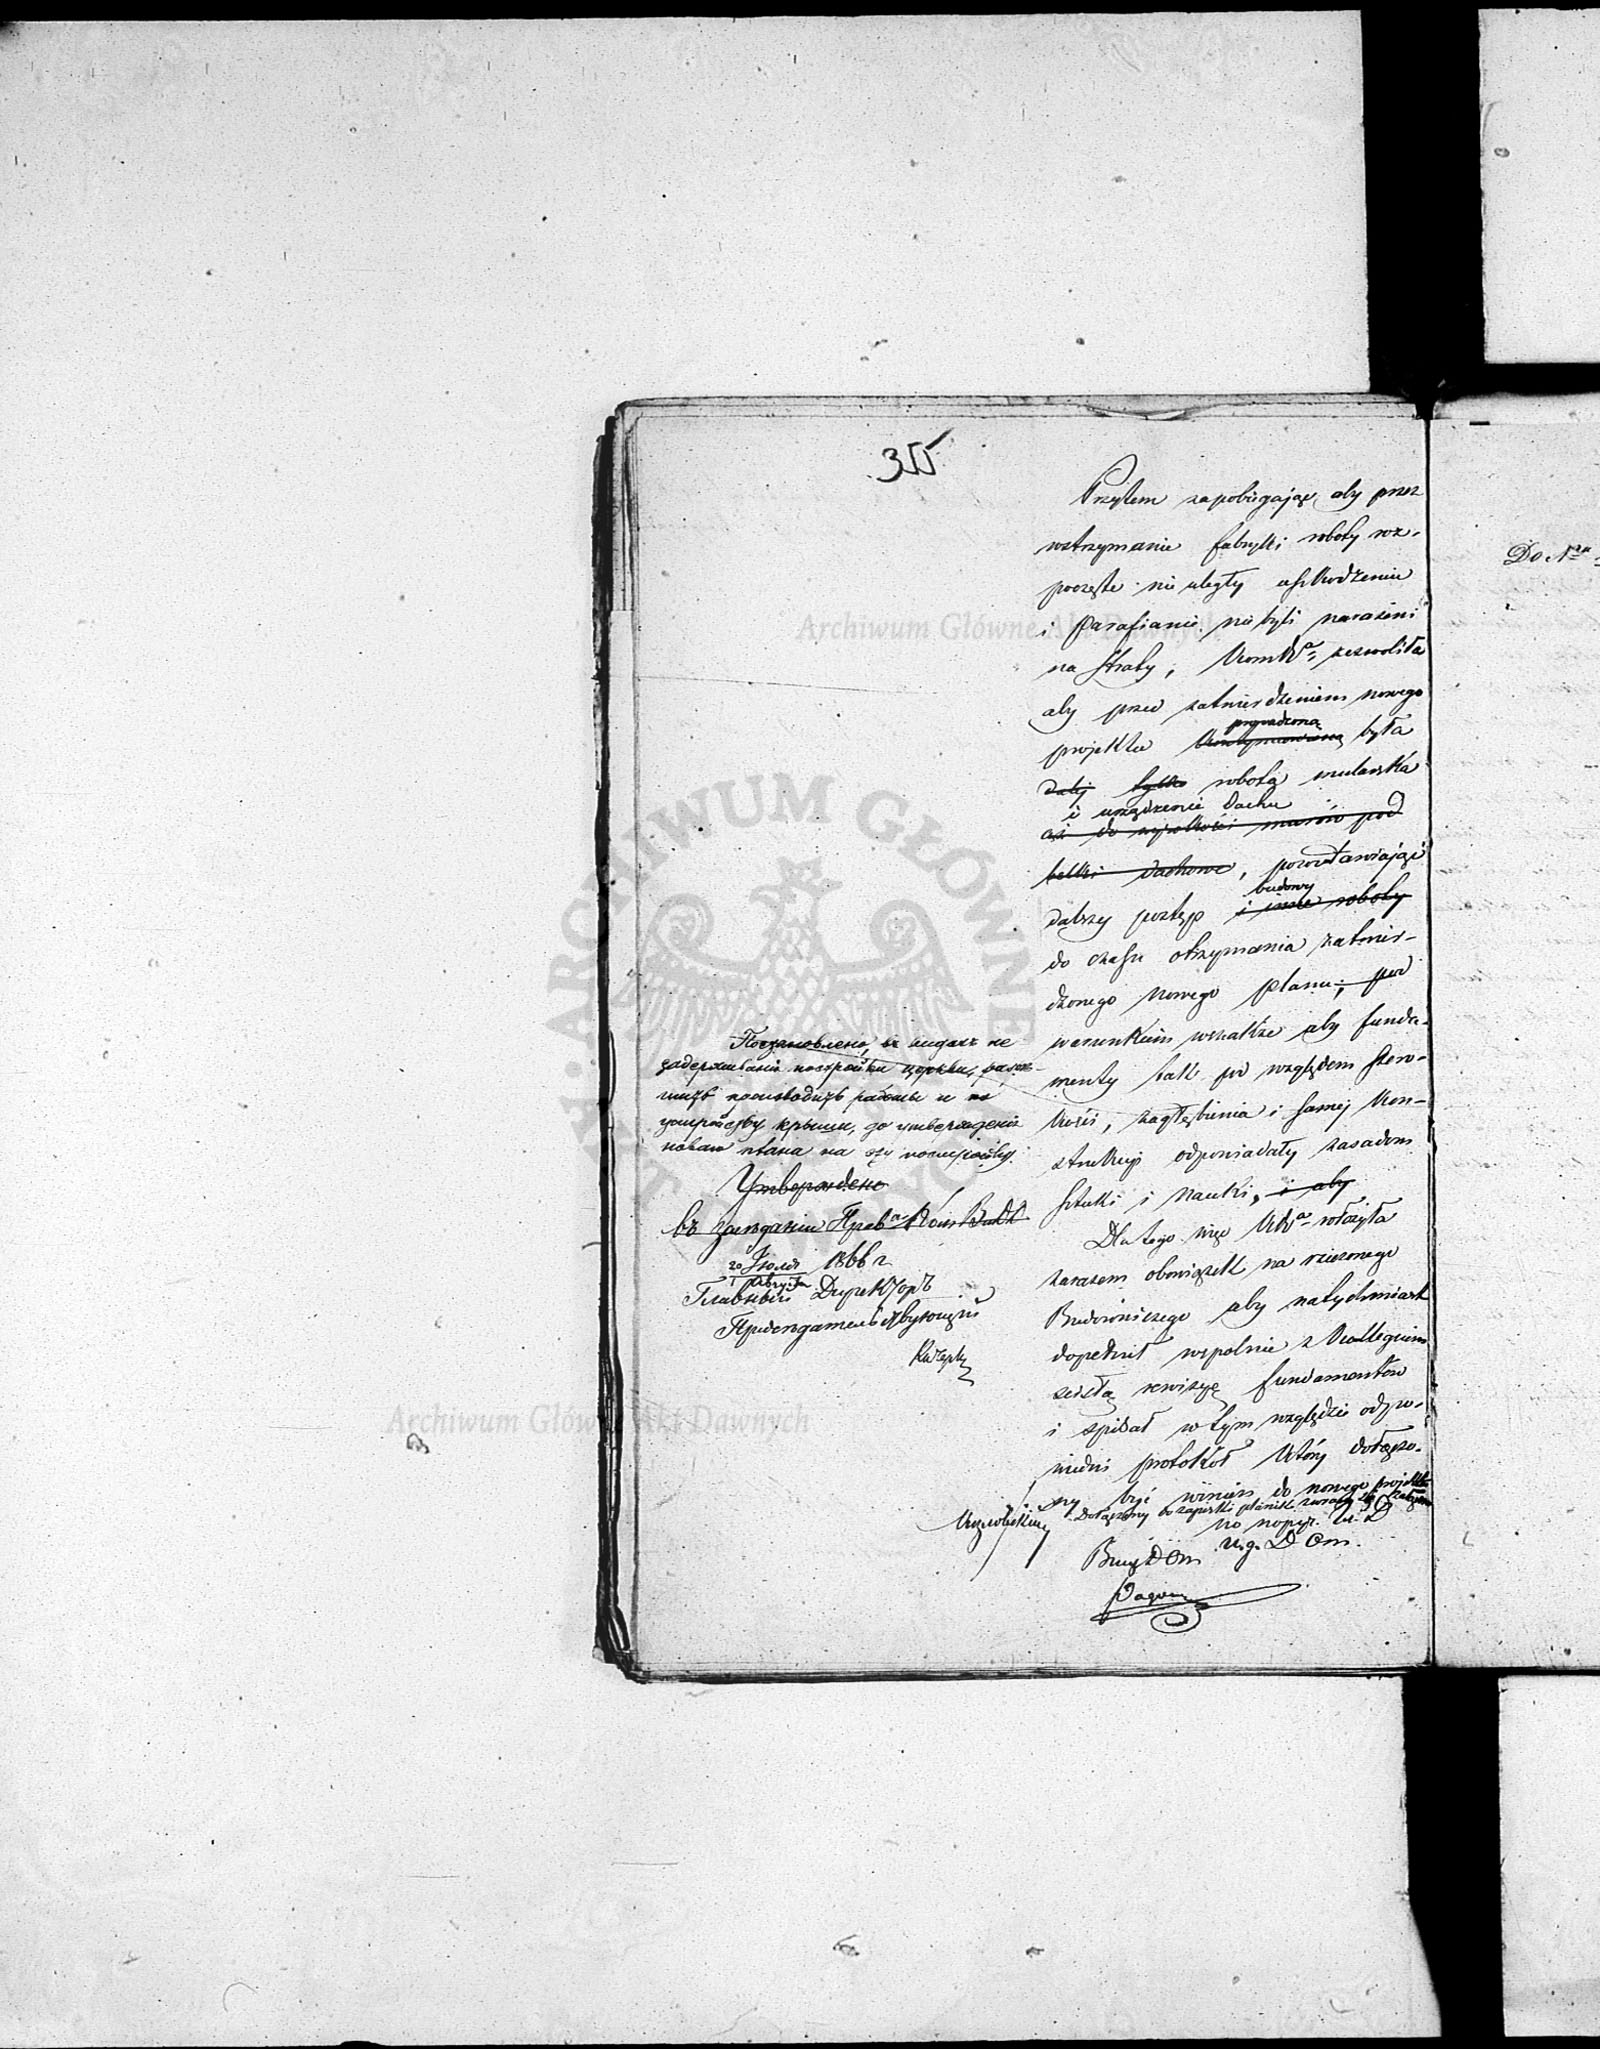 355
Przytem zapobiegając aby przez
wstrzymanie fabryki roboty roz-
poczęte nie uległy uszkodzeniu
i Parafianie nie byli narażeni
na straty, KomRa zezwoliła
aby przed zatwierdzeniem nowego
prowadzoną
projektu kontynuowaną była
dalej tylko robota mularska
i urządzenie dachu
aż do wysokości murów pod
belki dachowe, pozostawiając
budowy
dalszy postęp i inne roboty
do czasu otrzymania zatwier-
dzonego nowego planu, pod
warunkiem wszakże aby funda-
menty tak pod względem szero-
kości, zagłębienia i samej kon-
strukcji odpowiadały zasadom
sztuki i nauki, i aby
Dla tego więc KRa włożyła
zarazem obowiązek na rzeczonego
Budowniczego aby natychmiast
dopełnił wspólnie z Kollegium
ścisłą rewizyę fundamentów
i spisał w tym względzie odpo-
wiedni protokół który dołączo-
ny być winien do nowego projektu
Dołączony do zapiski planik
Постановлено, въ видахъ не
задерживанія постройки церкви, разрѣ-
шить производить работы и по
устройству крыши, до утвержденія
новаго плана на эту постройку.
Утверждено
въ засѣданіи Прав. Ком. ВиДД
20 Іюля 1866 г
1 Августа
Главный Директоръ
Предсѣдательствующій
Archiwum Główne Akt Dawnych
Archiwum Główne Akt Dawnych
ARCHIWUM GŁÓWNE AKT DAWNYCH
Do Nru